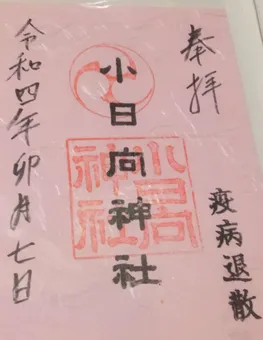 奉拝
疫病退散
小日向神社
小日向神社
令和四年卯月七日